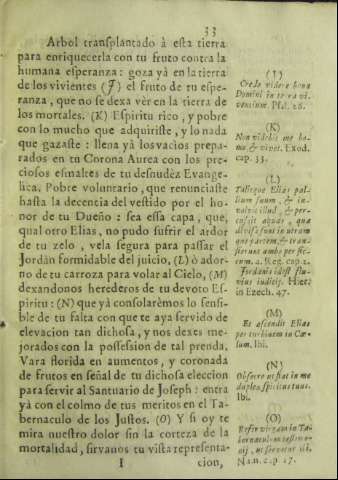 33
Arbol transplantado à esta tierra
para enriquecerla con tu fruto contra la
humana esperanza: goza yà en la tierra
de los vivientes (J) el fruto de tu espe-
ranza, que no se dexa vèr en la tierra de
los mortales. (K) Espiritu rico, y pobre
con lo mucho que adquiriste, y lo nada
que gazaste: llena yà los vacios prepa-
rados en tu Corona Aurea con los pre-
ciosos esmaltes de tu desnudèz Evange-
lica. Pobre voluntario, que renunciaste
hasta la decencia del vestido por el ho-
nor de tu Dueño: sea essa capa, que,
qual otro Elias, no pudo sufrir el ardor
de tu zelo, vela segura para passar el
Jordàn formidable del juicio, (L) ò ador-
no de tu carroza para volar al Cielo, (M)
dexandonos herederos de tu devoto Es-
piritu: (N) que yà consolarèmos lo sensi-
ble de tu falta con que te aya servido de
elevacion tan dichosa, y nos dexes me-
jorados con la possession de tal prenda.
Vara florida en aumentos, y coronada
de frutos en señal de tu dichosa eleccion
para servir al Santuario de Joseph: entra
yà con el colmo de tus meritos en el Ta-
bernaculo de los Justos. (O) Y si oy te
mira nuestro dolor sin la corteza de la
mortalidad, sirvanos tu vista representa-
I
cion,
(J)
Credo videre bona
Domini in terra vi-
ventium. Psal. 26.
(K)
Non videbit me ho-
mo, & vivet. Exod.
cap. 33.
(L)
Tulitque Elias pal-
lium suum, & in-
volvit illud, & per-
cussit aquas, quæ
divisæ sunt in utram
que partem, & tran-
sierunt ambo per sic-
cum. 4. Reg. cap. 2.
Jordanis idest flu-
vius iudicij. Hier.
in Ezech. 47.
(M)
Et ascendit Elias
per turbinem in Cæ-
lum. Ibi.
(N)
Obsecro ut fiat in me
duplex spiritus tuus.
Ibi.
(O)
Refer virgam in Ta-
bernaculum testimo-
nij, ut servetur ibi,
Num. cap. 17.